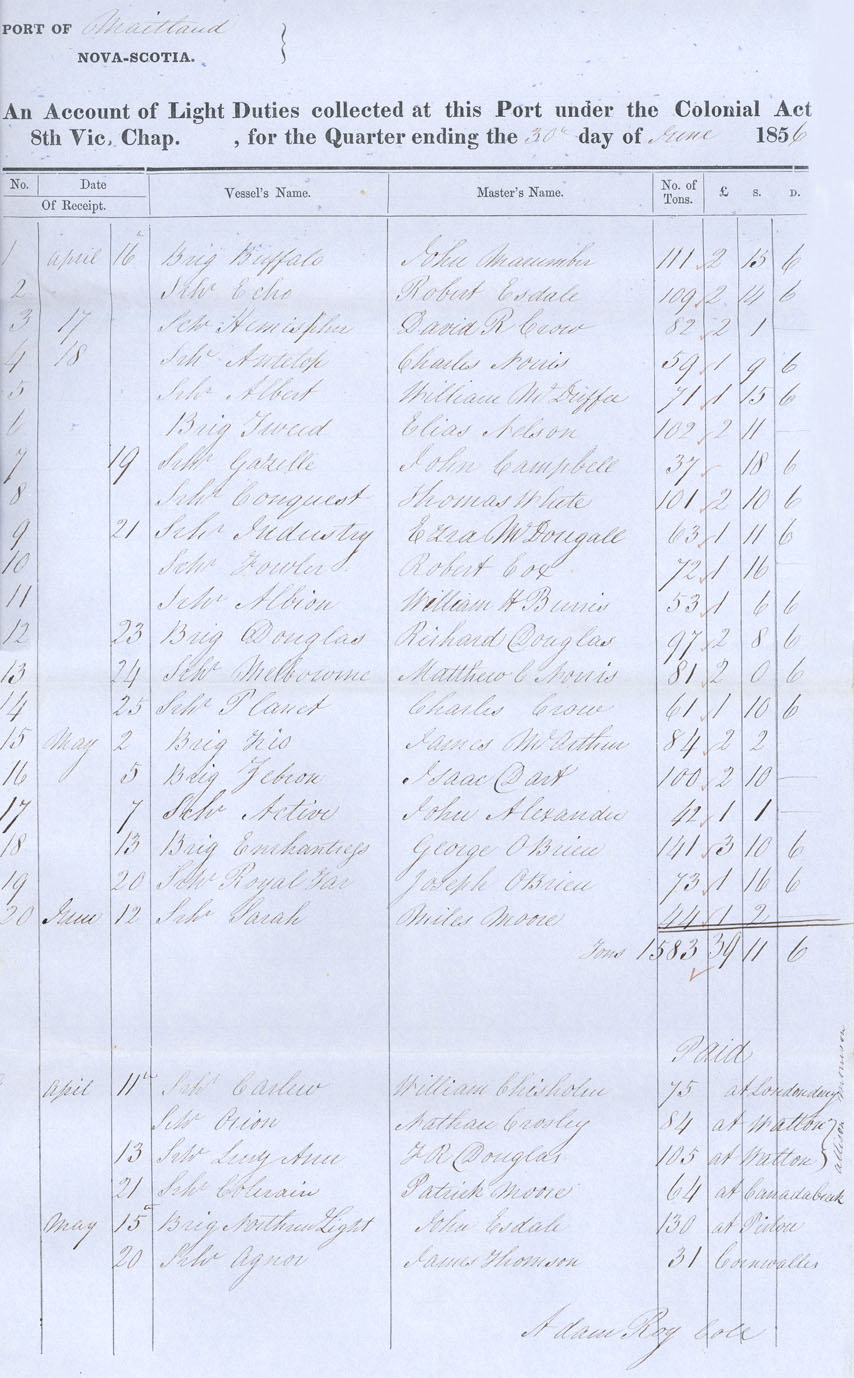 PORT OF Maitland
NOVA-SCOTIA.
An Account of Light Duties collected at this Port under the Colonial Act
8th Vic. Chap. , for the Quarter ending the 30th day of June 1856
No. Date Vessel's Name. Master's Name. No. of Tons. £ S. D.
Of Receipt.
1 April 16th Brig Buffalo John Macumber 111 2 15 6
2 Schr Echo Robert Esdale 109 2 14 6
3 17 Schr Hemispher David R Crow 82 2 1 —
4 18 Schr Antelop Charles Norris 59 1 9 6
5 Schr Albert William McDuffee 71 1 15 6
6 Brig Tweed Elias Nelson 102 2 11 —
7 19 Schr Gazelle John Campbell 37 18 6
8 Schr Conquest Thomas White 101 2 10 6
9 21 Schr Industry Ezra McDougall 63 1 11 6
10 Schr Fowler Robert Cox 72 1 16
11 Schr Albion William H Burris 53 1 6 6
12 23 Brig Douglas Richard Douglas 97 2 8 6
13 24 Schr Melbourne Matthew C Norris 81 2 0 6
14 25 Schr Planet Charles Crow 61 1 10 6
15 May 2 Brig Trio James McArthur 84 2 2 —
16 5 Brig Zebron Isaac Dart 100 2 10 —
17 7 Schr Active John Alexander 42 1 1 —
18 13 Brig Enchantress George OBrien 141 3 10 6
19 20 Schr Royal Tar Joseph OBrien 73 1 16 6
20 June 12 Schr Sarah Miles Moore 44 1 2 —
Tons 1583 39 11 6
Paid
April 11th Schr Carlew William Chisholm 75 at Londonderry
Schr Orion Nathan Crosley 84 at Walton
13 Schr Lucy Ann J R Douglas 105 at Walton
21 Schr Colerain Patrick Moore 64 at Canada Creek
May 15th Brig Northern Light John Esdale 130 at Pictou
20 Schr Agnor James Thomson 31 Cornwallis
Adam Roy Colr